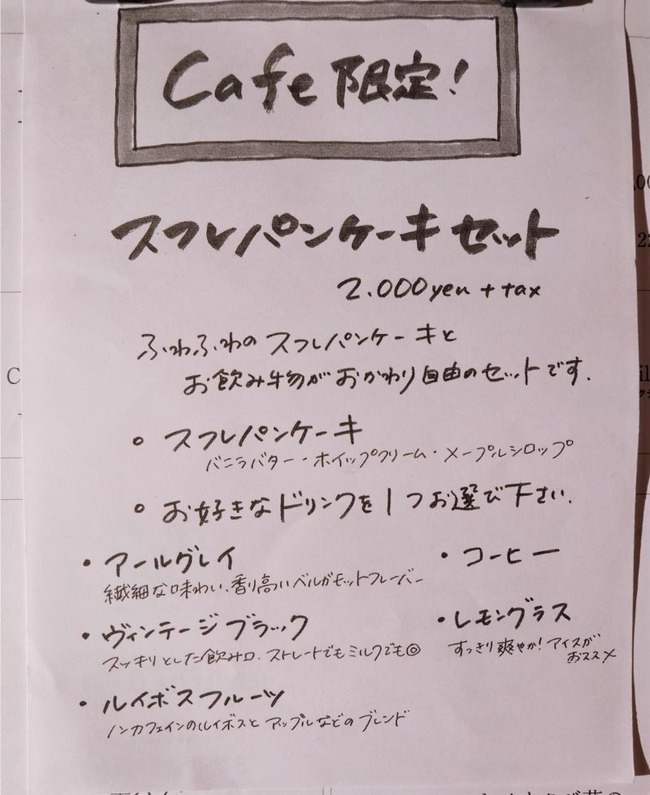 Cafe 限定!
スフレパンケーキ セット
2.000yen + tax
ふわふわの スフレパンケーキと
お飲み物が おかわり自由のセットです.
○ スフレパンケーキ
バニラバター・ホイップクリーム・メープルシロップ
○ お好きなドリンクを1つお選び下さい.
・アールグレイ
繊細な味わい、香り高いベルガモットフレーバー
・ヴィンテージ ブラック
スッキリとした飲み口. ストレートでもミルクでも◎
・ルイボスフルーツ
ノンカフェインのルイボスと アップルなどの ブレンド
・コーヒー
・レモングラス
すっきり爽やか! アイスが
おススメ